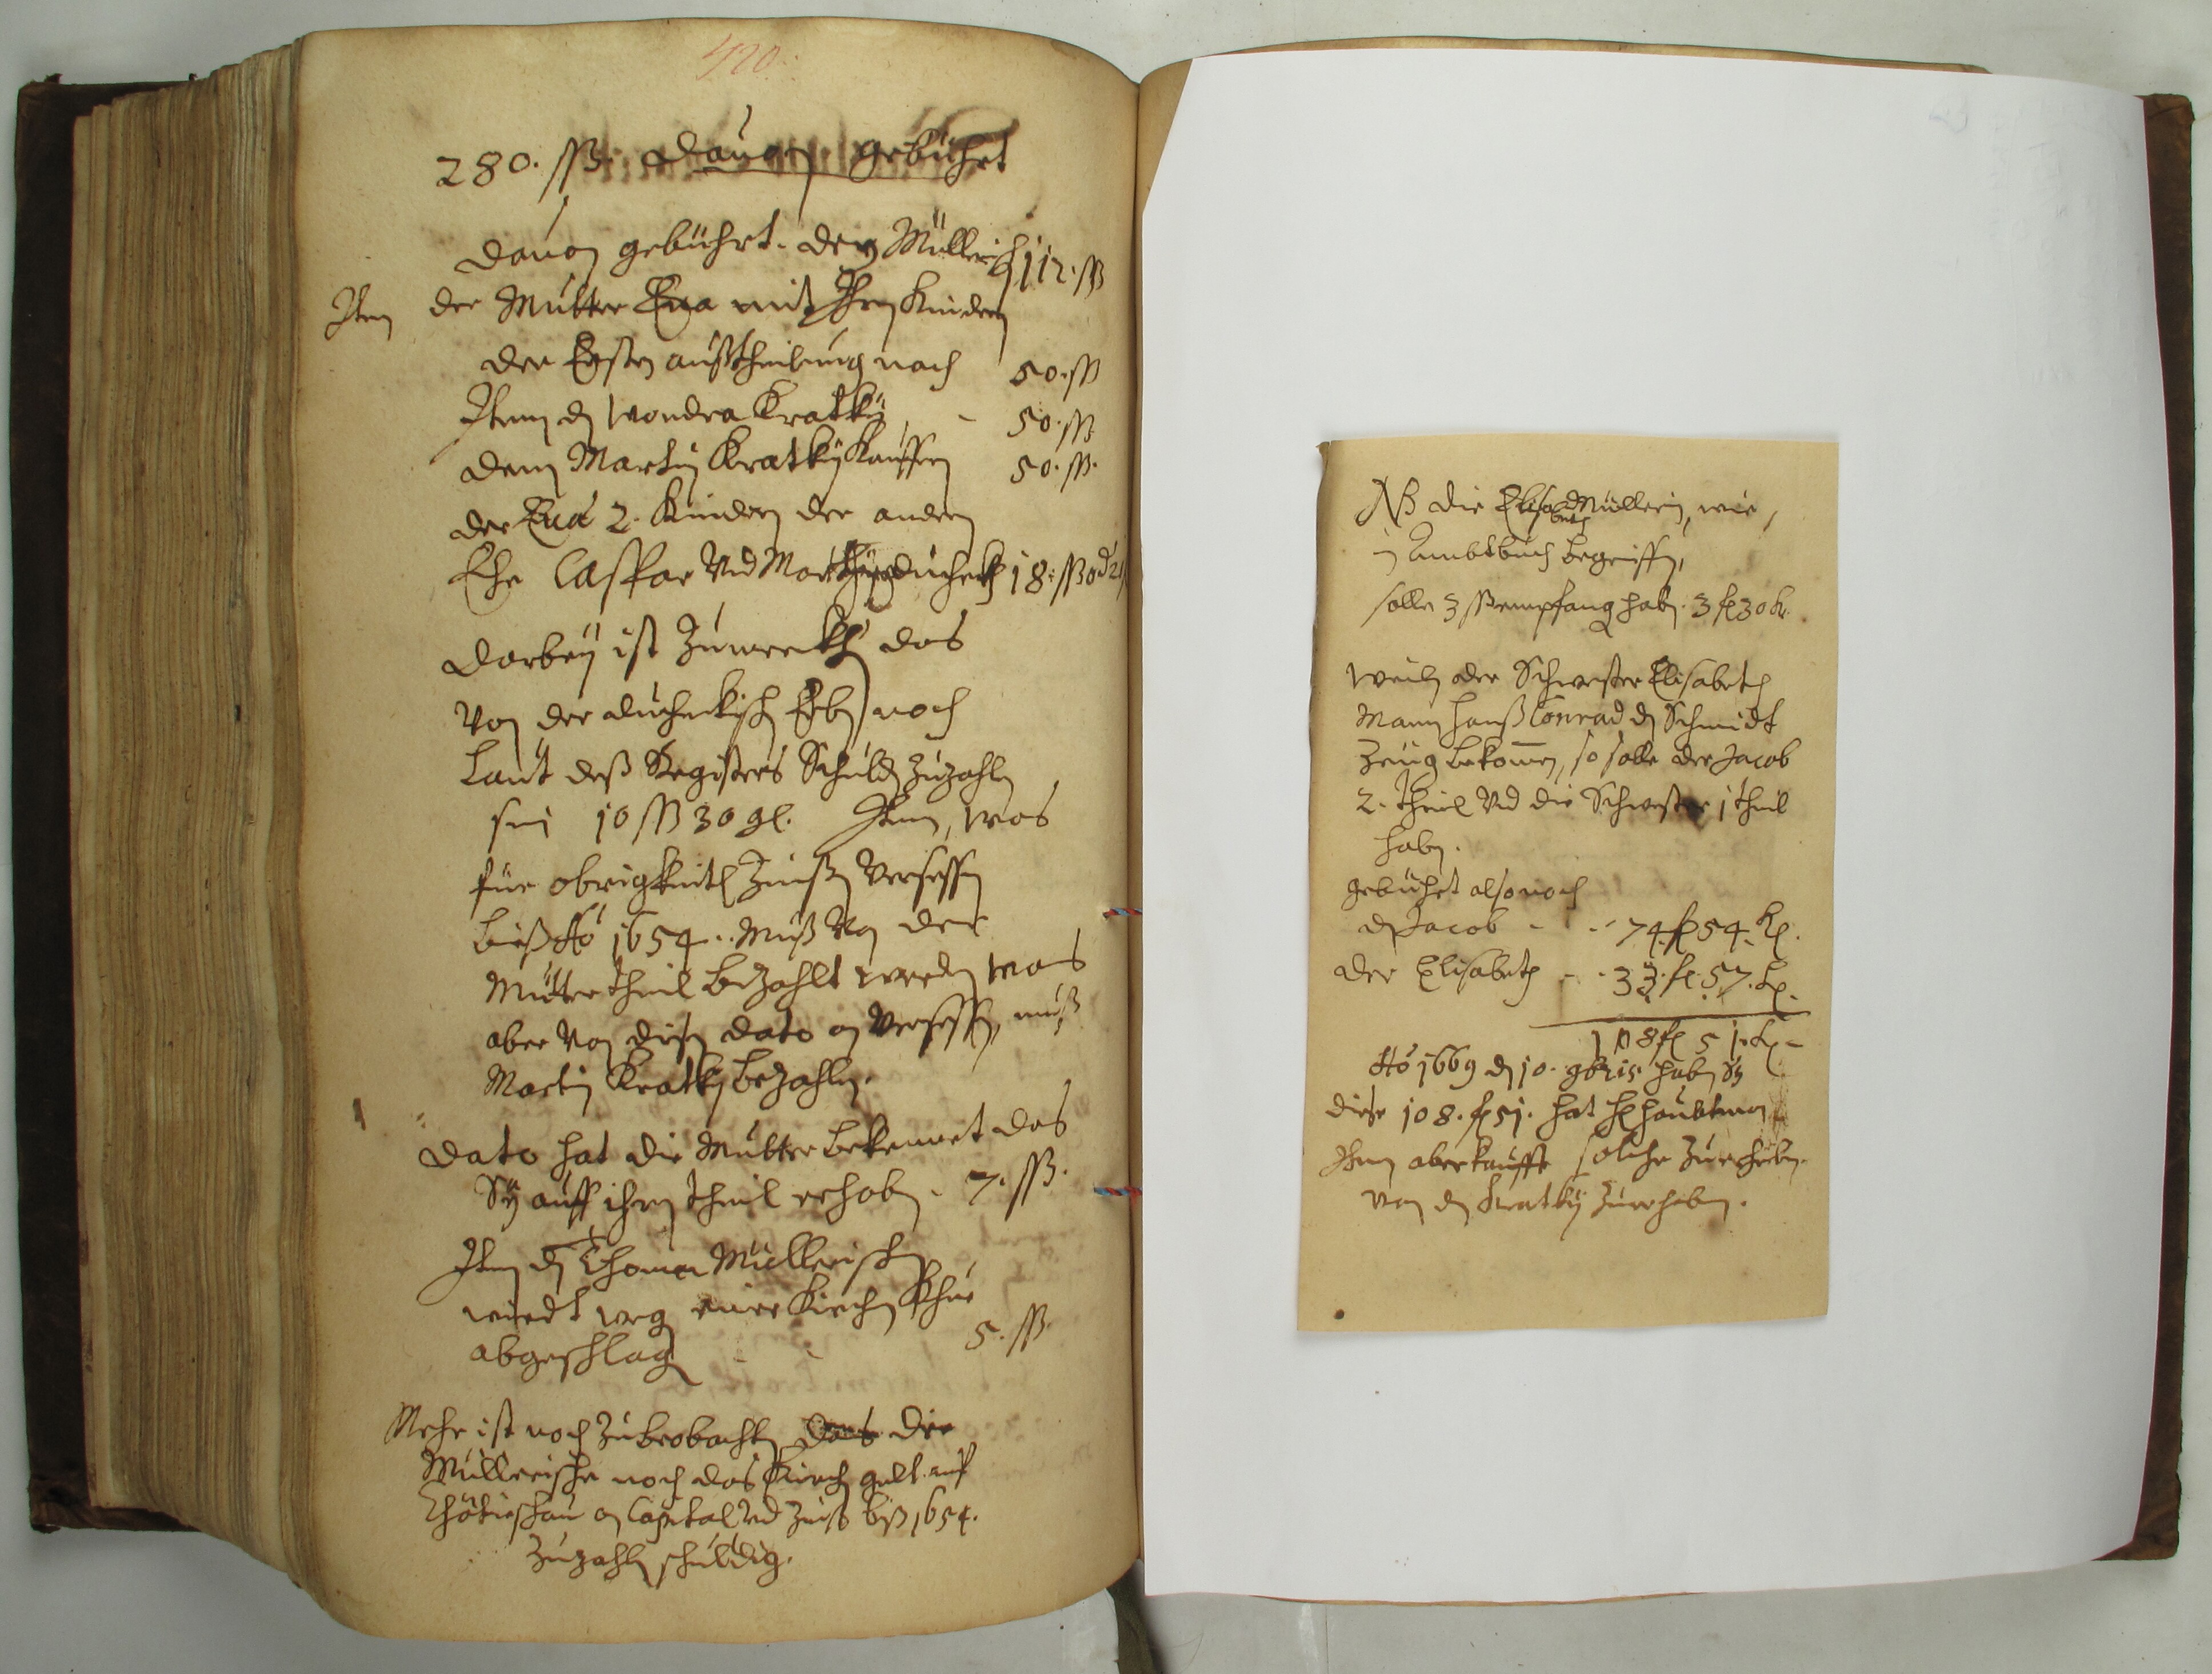 420.
280. ßß. dauon gebührt
dauon gebührt. den Müllerisch 112. ßß
Item der Mutter Eua mit Ihren Kindern
der Ersten außtheilung nach 50. ßß
Item dem Wondra Kratky - 50. ßß.
dem Martin Kratky Kauffern 50. ßß.
der Eua 2. Kindern der andern
Ehe Caspar vnd 18. ßß
darbey ist Zumerkhen das
von der Erben noch
Laut deß Registers Schulden Zuzahlen
sein 10 ßß 30 gl. Item, was
für obrigkheitl Zinßen versessen
bieß Ao 1654. Muß von der
Mutter theil bezahlt werden was
aber von disen dato an versessen, muß
Martin Kratky bezahlen.
dato hat die Mutter bekennet das
Sy auff ihren theil erhoben. 7. ßß.
Item den Thoma Müllerischen
wierdt wegen einer Kirchen Khue
abgeschlagen - - 5. ßß.
Mehr ist noch Zubeobachten das die
Müllerische noch das Kirchen gelt auf
an Capital vnd Zinß biß 1654.
Zuzahlen schuldig.
NB die Elisabeth Müllerin, wie
in Ambtbuch begriffen,
solle 3 ßß empfangen haben. 3 fl 30 kr.
Weilen der Schwester Elisabeth
Mann Hanß Conrad den Schmidt
Zeug bekommen, so solle der Jacob
2. theil vnd die Schwester 1 theil
haben.
gebührt also noch
dem Jacob - - 74. fl 54. kr.
der Elisabeth - - 33. fl. 57. kr.
108 fl 51. kr -
Ao 1669 den 10. 9bris haben Sy
diese 108. fl 51. hat H haubtman
Ihnen aberkaufft solche
von den Kratky Zuerheben.